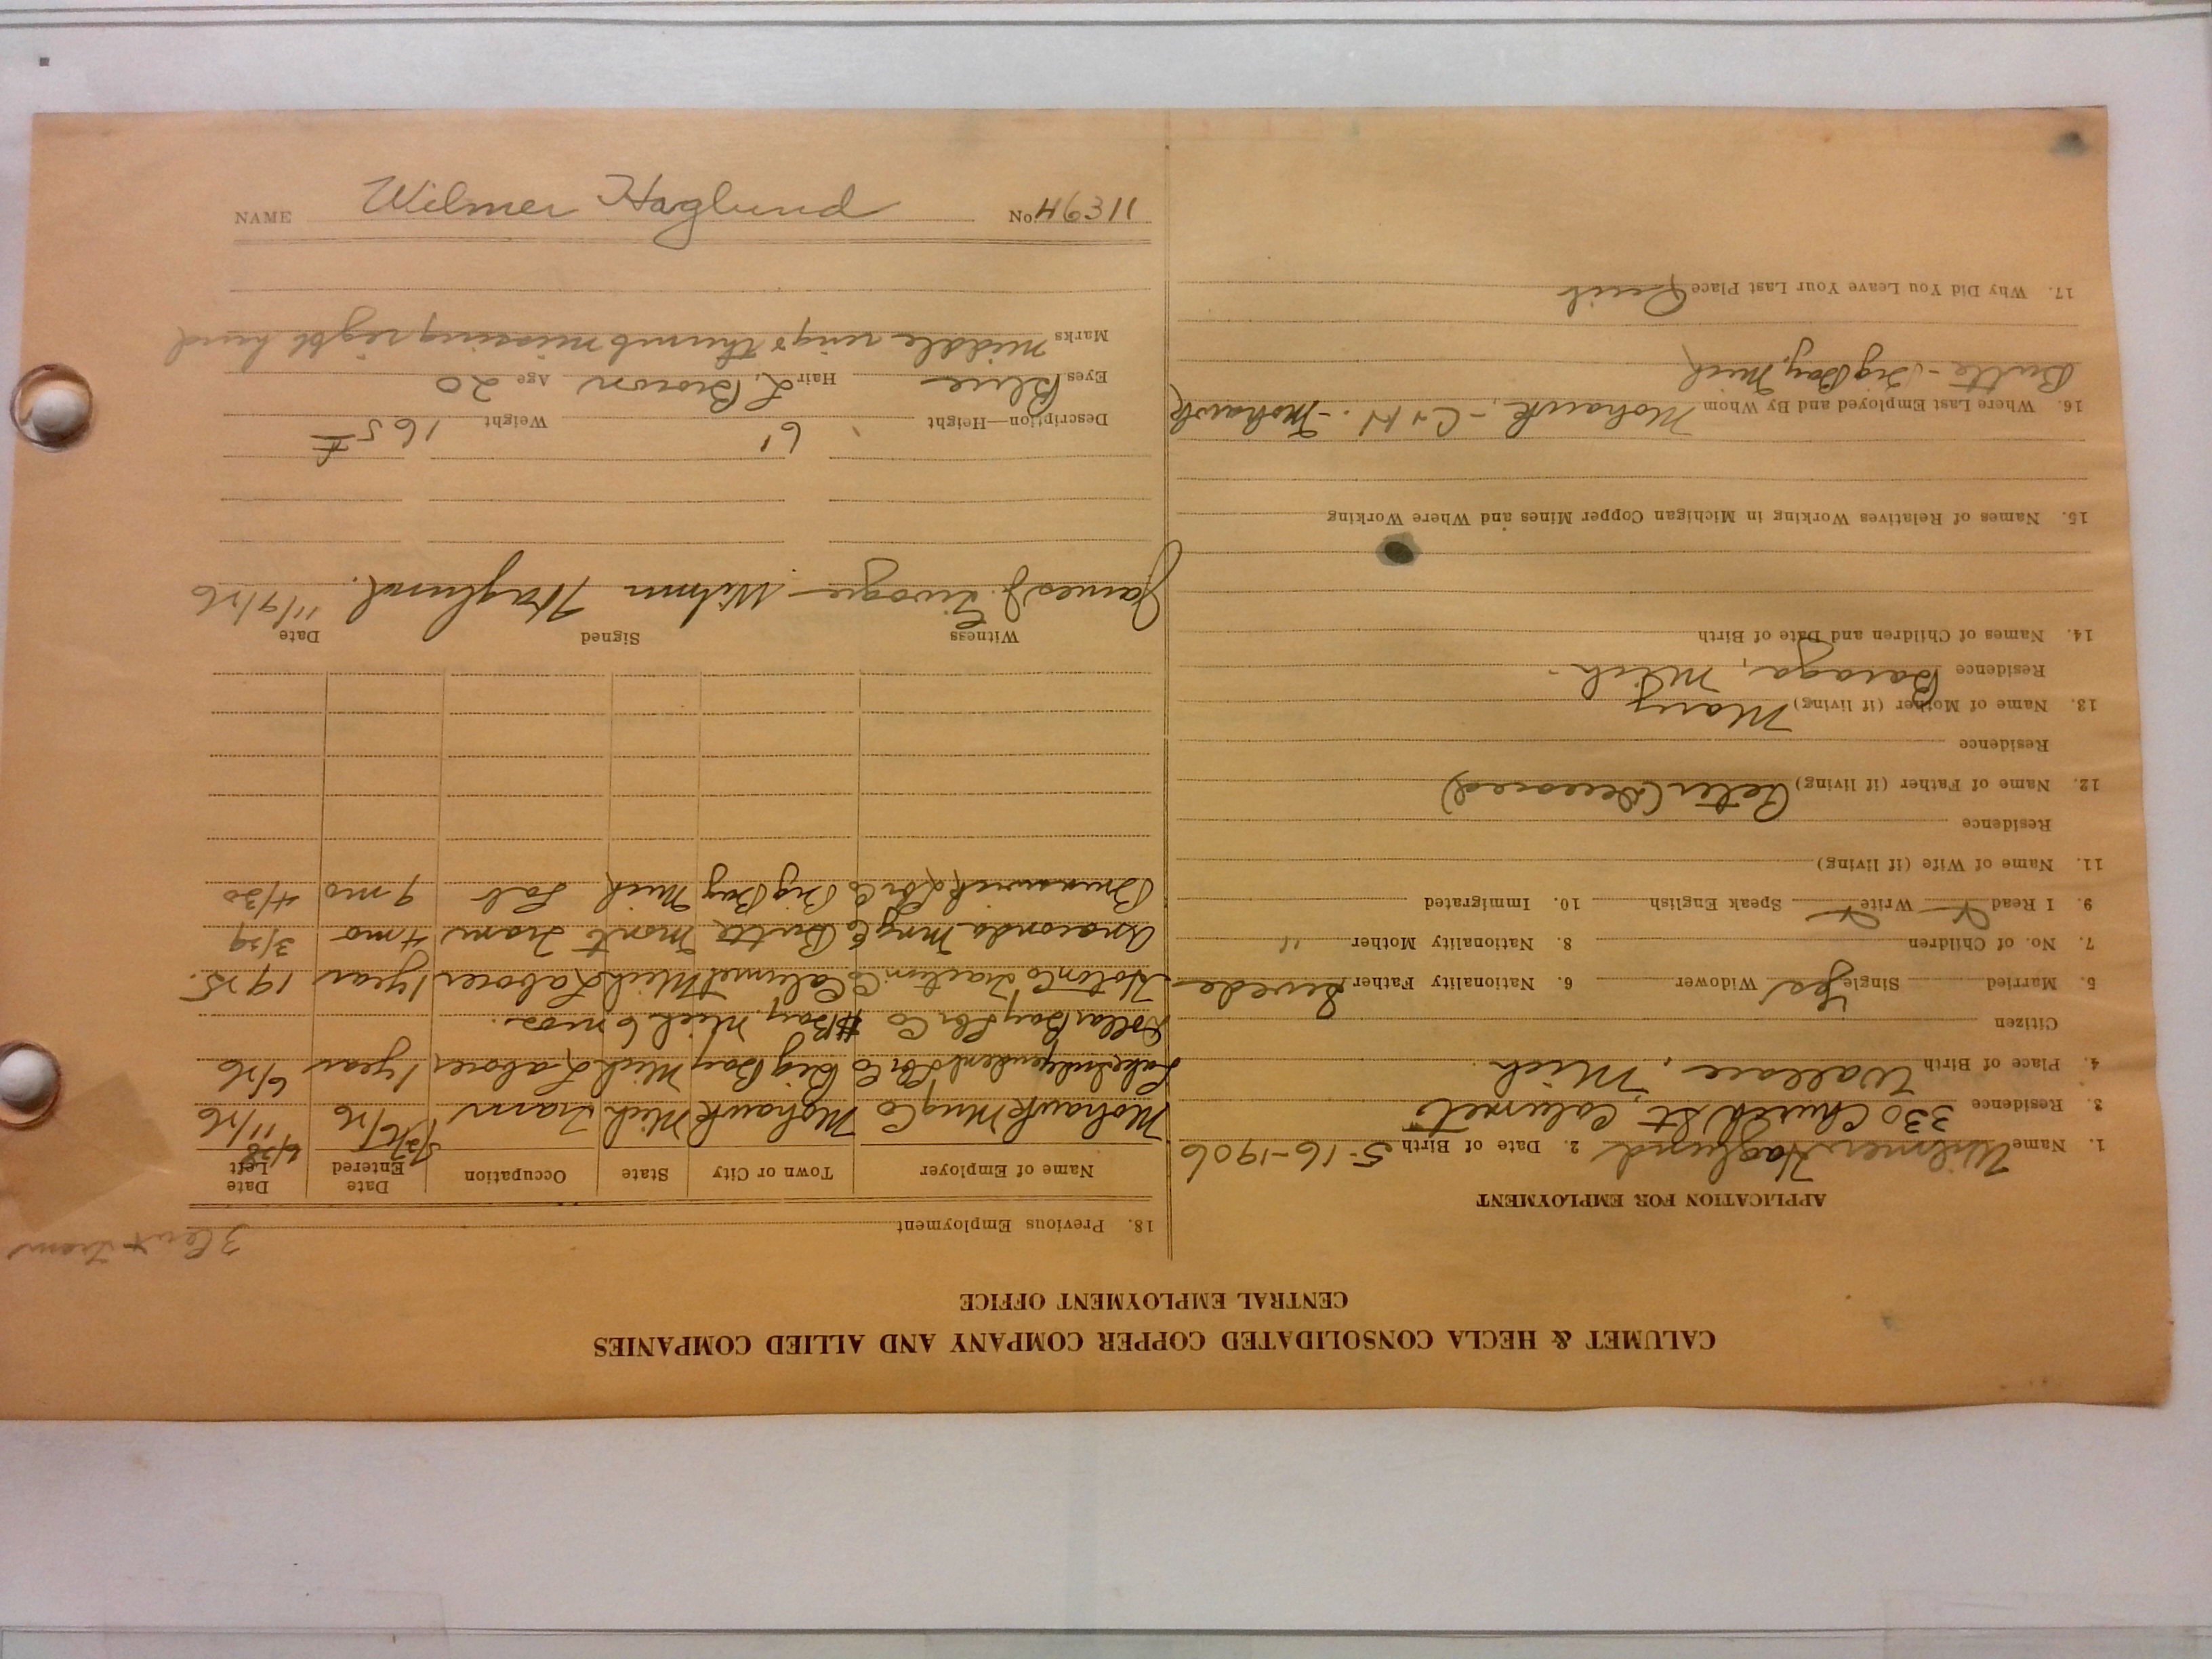 CALUMET & HECLA CONSOLIDATED COPPER COMPANY AND ALLIED COMPANIES
CENTRAL EMPLOYMENT OFFICE
APPLICATION FOR EMPLOYMENT
1. Name Wilmer Haglund 2. Date of Birth 5-16-1906
3. Residence 330 Church St, Calumet
4. Place of Birth Wallace, Mich
Citizen
5. Married Single Yes Widower 6. Nationality Father Swede
7. No. of Children 8. Nationality Mother "
9. I Read Write Speak English 10. Immigrated
11. Name of Wife (if living)
Residence
12. Name of Father (if living) Peter (Deceased)
Residence
13. Name of Mother (if living) Mary
Residence Baraga, Mich.
14. Names of Children and Date of Birth
15. Names of Relatives Working in Michigan Copper Mines and Where Working
16. Where Last Employed and By Whom Mohawk - C & H. - Mohawk
Butte - Big Bay, Mich
17. Why Did You Leave Your Last Place Quit
18. Previous Employment
Name of Employer Town or City State Occupation Date Entered Date Left
Mohawk Mng Co Mohawk Mich Tram 6/26 11/26
Lake Independent Lbr Co Big Bay Mich Laborer 1 year 6/26
Dollar Bay Lbr Co $ Bay, Mich 6 mos.
Hoton Co Traction Co Calumet Mich Laborer 1 year 1925.
Anaconda Mng Co Butte Mont Tram 4 mo 3/29
Brunswick Lbr Co Big Bay Mich Lab 9 mo 4/30
Witness Signed Date
James J. Wilmer Haglund. 11/9/26
Description—Height 6' Weight 165 #
Eyes Blue Hair L. Brown Age 20
Marks middle ring & thumb missing right hand
NAME Wilmer Haglund No. 11394